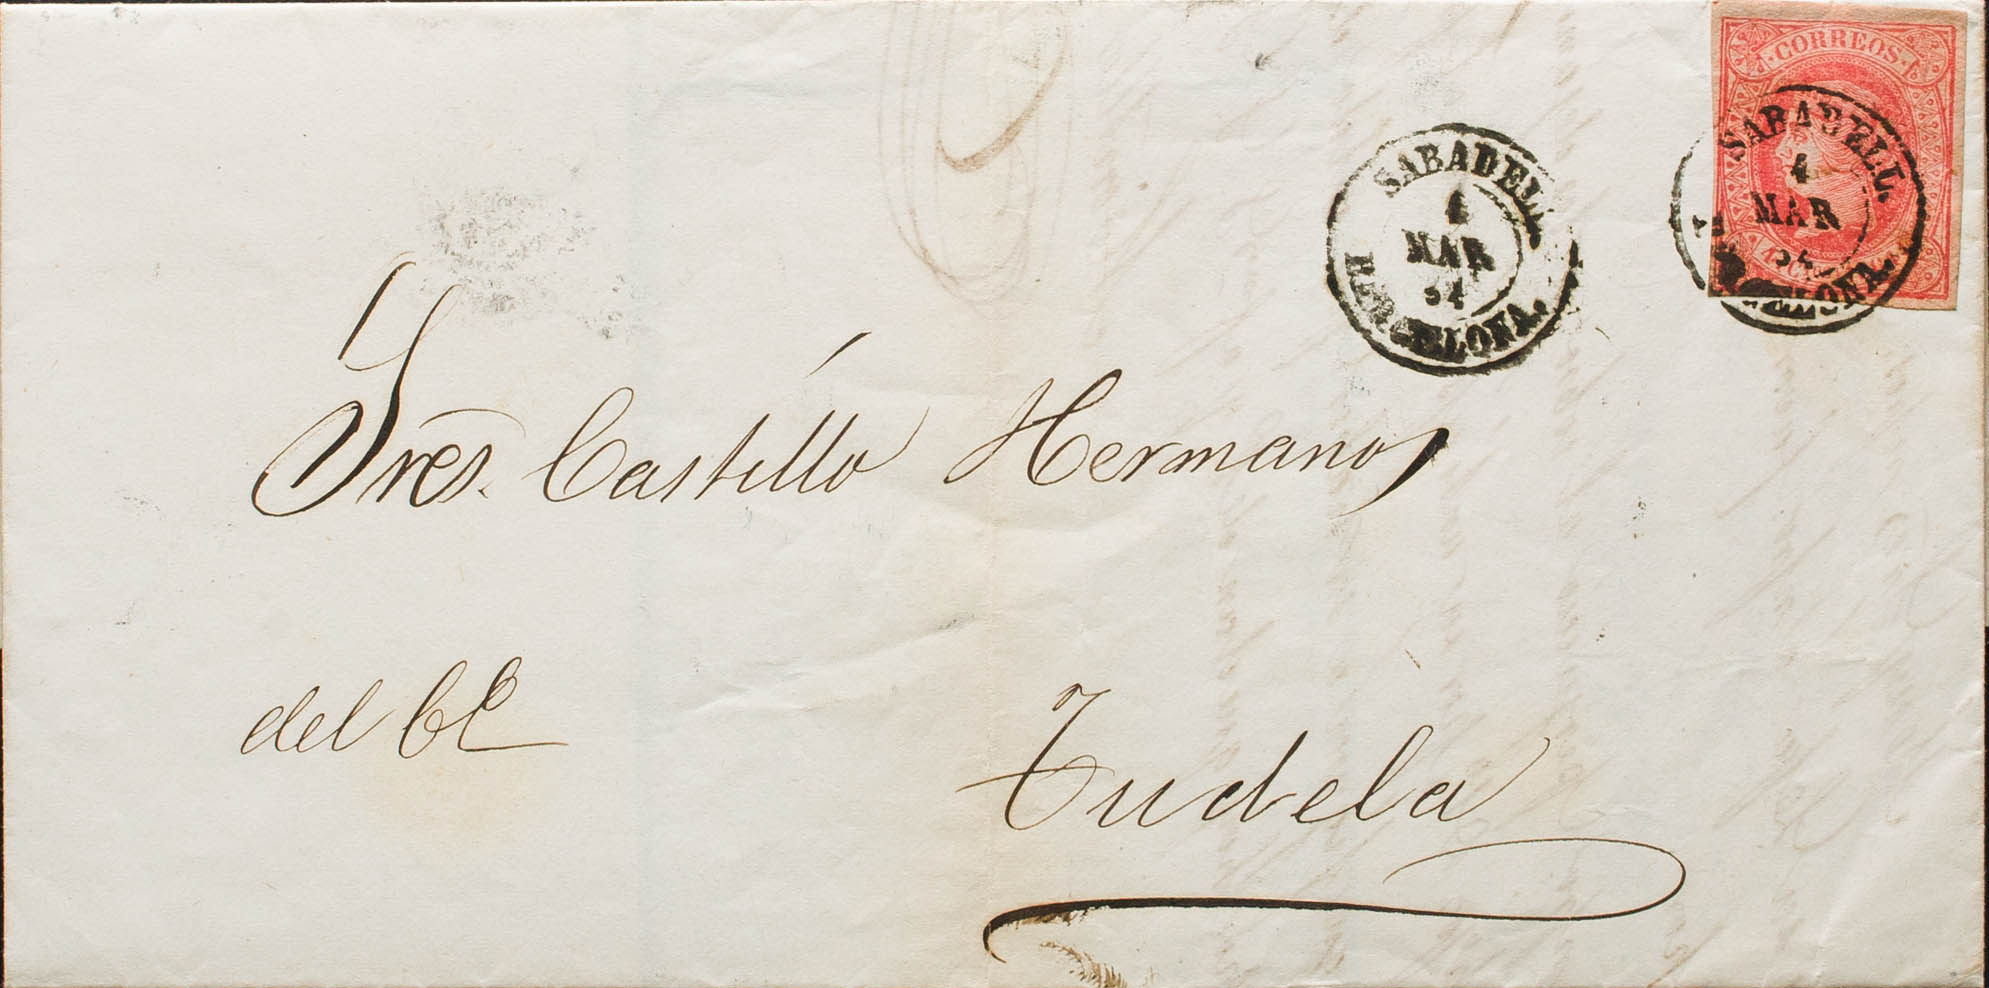 CORREOS
SABADELL
4
MAR
64
BARCELONA.
SABADELL.
4
MAR
64
BARCELONA.
Sres. Castillo Hermanos
del Cº
Tudela